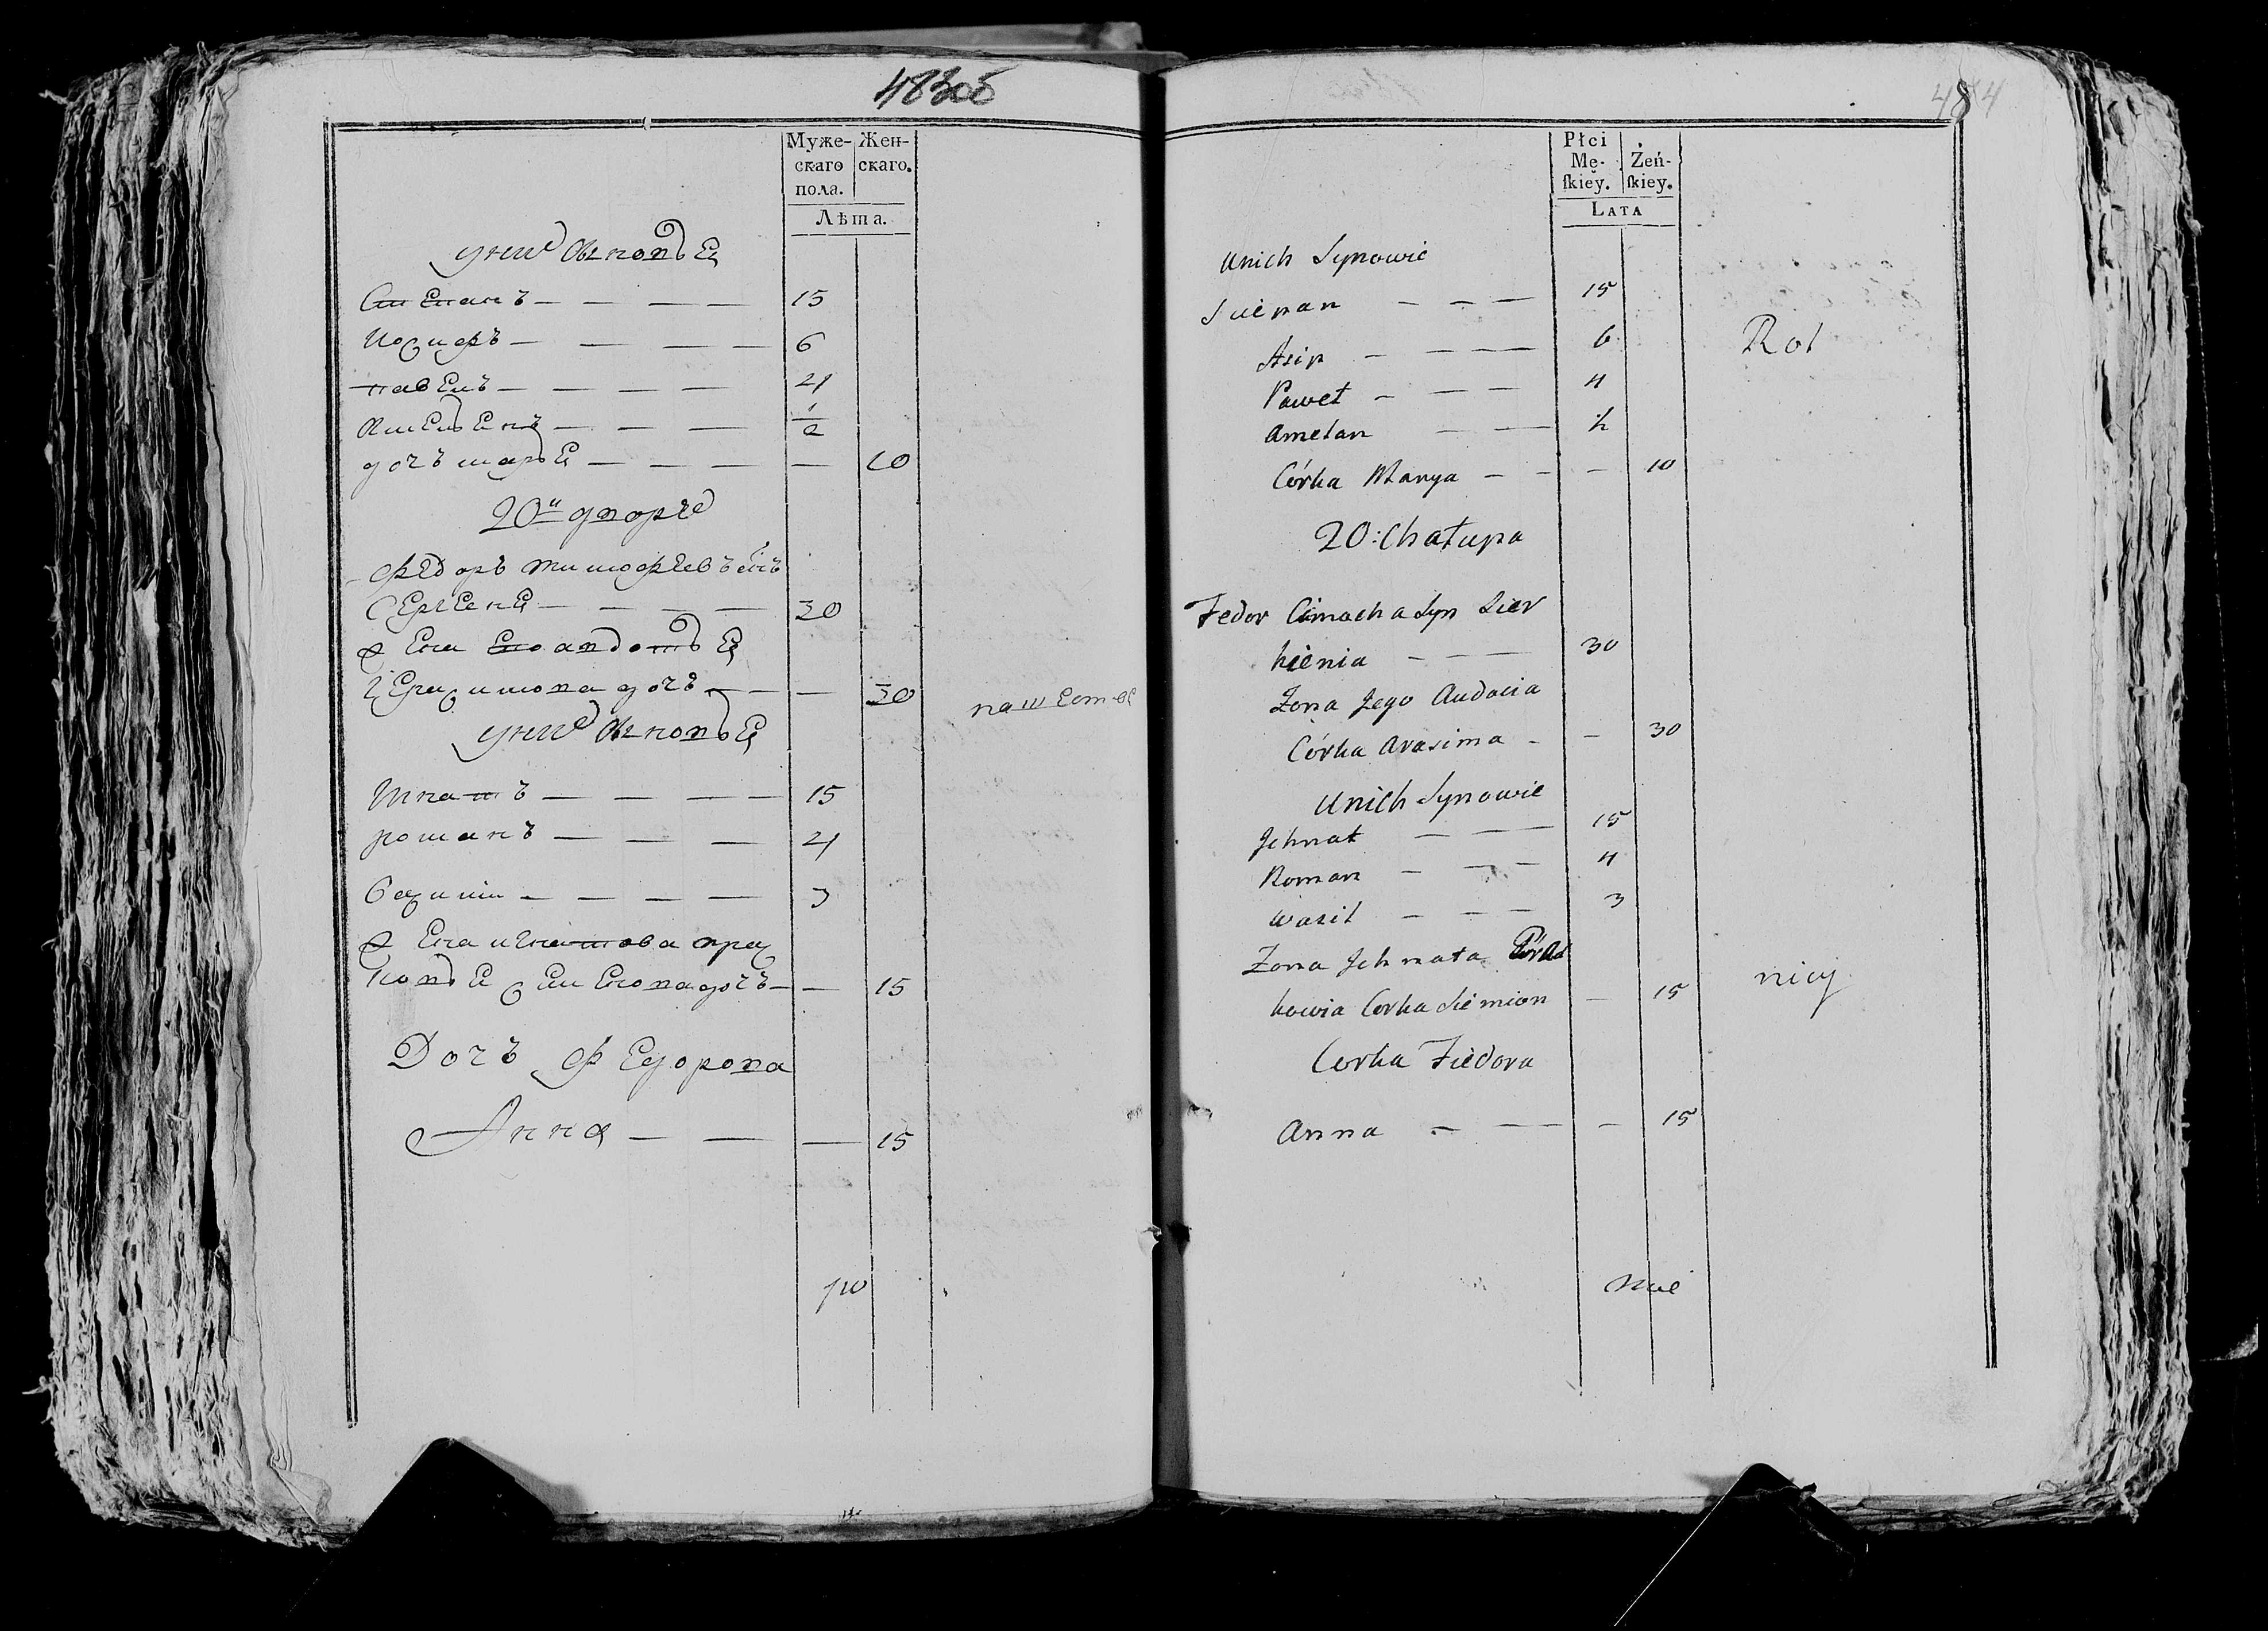 483об
Муже- Жен-
скаго скаго.
пола.
Лѣта.
уних сыновья
Степанъ — — — — 15
Иосифъ — — — — 6
павелъ — — — — 4
Амельянъ — — — 1/2
дочъ марья — — — — 10
20й дворъ
Федоръ тимофеевъ сынъ
30
жена его авдотья
дочъ — — — 30
уних сыновья
Игнатъ — — — — 15
романъ — — — 4
васили — — — — 3
жена игнатова прас
ковья семенова дочъ — — 15
Дочъ Федорова
Анна — — — 15
484
Płci
Mę- Żeń-
ſkiey. ſkiey.
LATA
Unich Synowie
Sciepan — — — 15
Asip — — — 6
Roi
Paweł — — — 4
Amelan — — ½
Córka Marya — — — 10
20: Chałupa
Fedor Cimocha Syn Sier
hienia — — 30
Zona Jego Audocia
Córka Arasima — — 30
Unich Synowie
Jehnat — — 15
Roman — — — 4
Wasil — — — 3
Zona Jehnata Pras
kowia Corka Siemion — 15
nicy
Corka Fiedora
Anna — — — 15